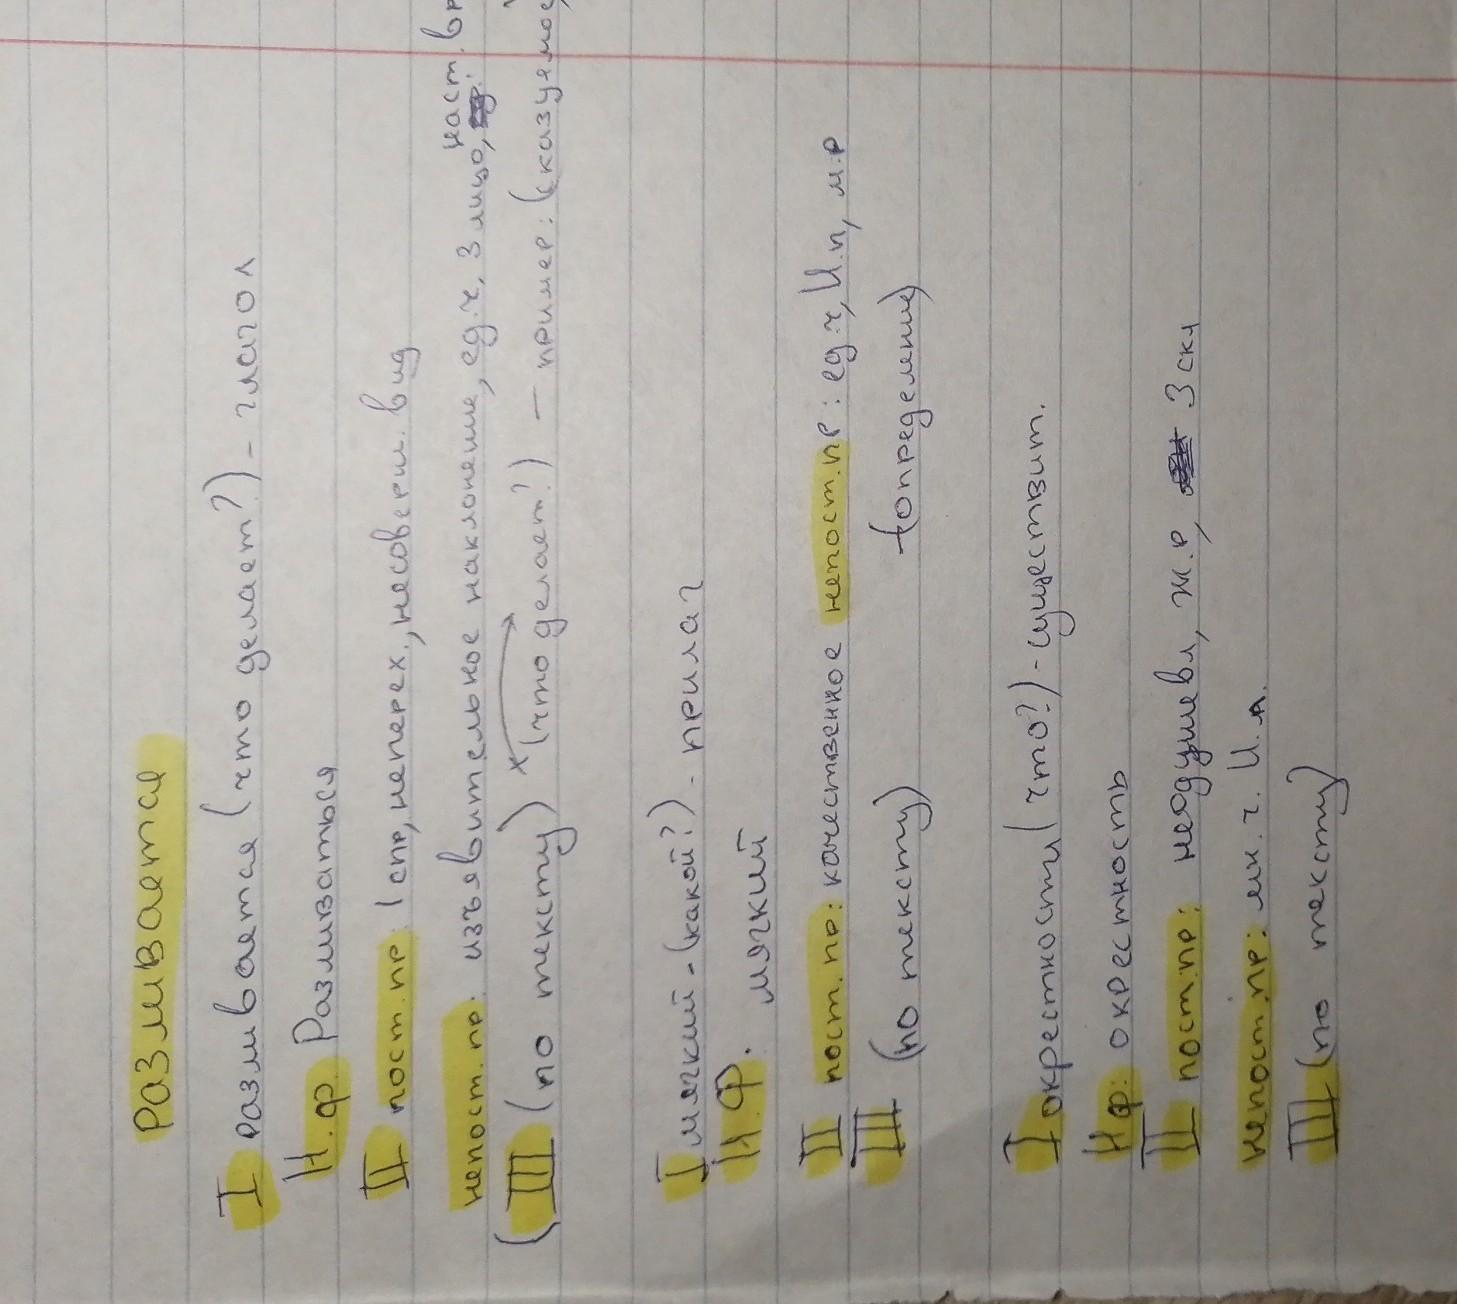 Разливается
I разливается (что делает?) - глагол
Н.ф. Разливаться
II пост. пр: 1 спр, неперех., несоверш. вид
непост. пр: изъявительное наклонение, ед.ч, 3 лицо, наст. вр
(III (по тексту) (что делает?) — пример: (сказуемое
I мягкий - (какой?) - прилаг
Н.Ф. мягкий
II пост. пр: качественное непост. пр: ед.ч, И.п, м.р
III (по тексту) (определение)
I окрестности (что?) - существит.
Н.ф: окрестность
II пост. пр: неодушевл, ж.р, 3 скл
непост. пр: мн. ч. И.п.
III (по тексту)